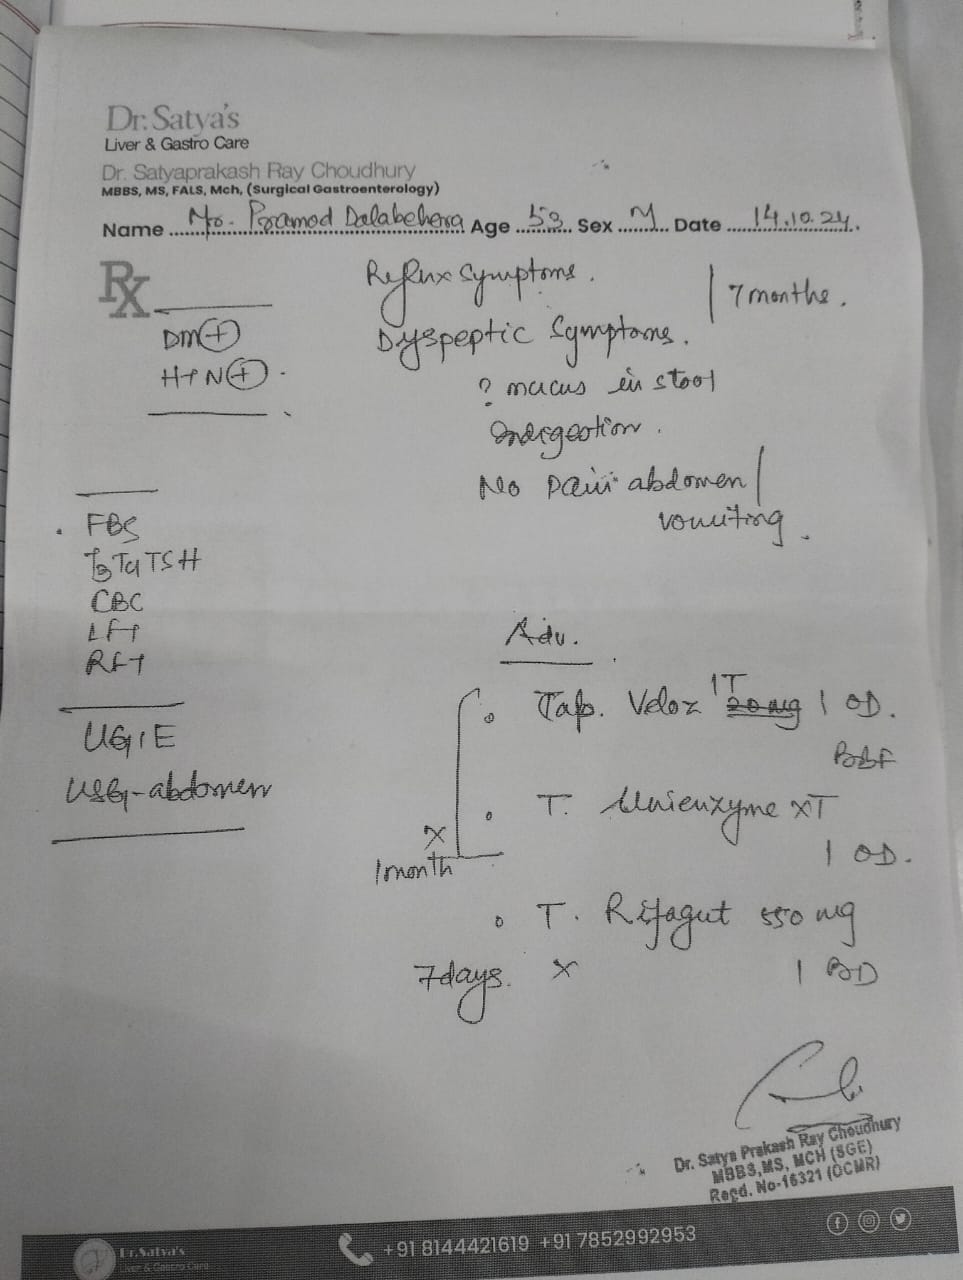 Dr. Satya's
Liver & Gastro Care
Dr. Satyaprakash Ray Choudhury
MBBS, MS, FALS, Mch, (Surgical Gastroenterology)
Name Mr. Pramod Dalabehera Age 53 Sex M Date 14.10.24
Rx
DM (+)
HTN (+)
Reflux Symptoms.
Dyspeptic Symptoms. | 7 months.
? mucus in stool
Indigestion.
No pain abdomen /
vomiting.
FBS
T3 T4 TSH
CBC
LFT
RFT
UGIE
USG-abdomen
Adv.
Tab. Veloz IT 20 mg 1 OD.
BBF
T. Unienzyme XT
1 OD.
x
1 month
T. Rifagut 550 mg
7 days. x 1 BD
Dr. Satya Prakash Ray Choudhury
MBBS, MS, MCH (SGE)
Regd. No-16321 (OCMR)
Dr. Satya's
Liver & Gastro Care
+91 8144421619 +91 7852992953